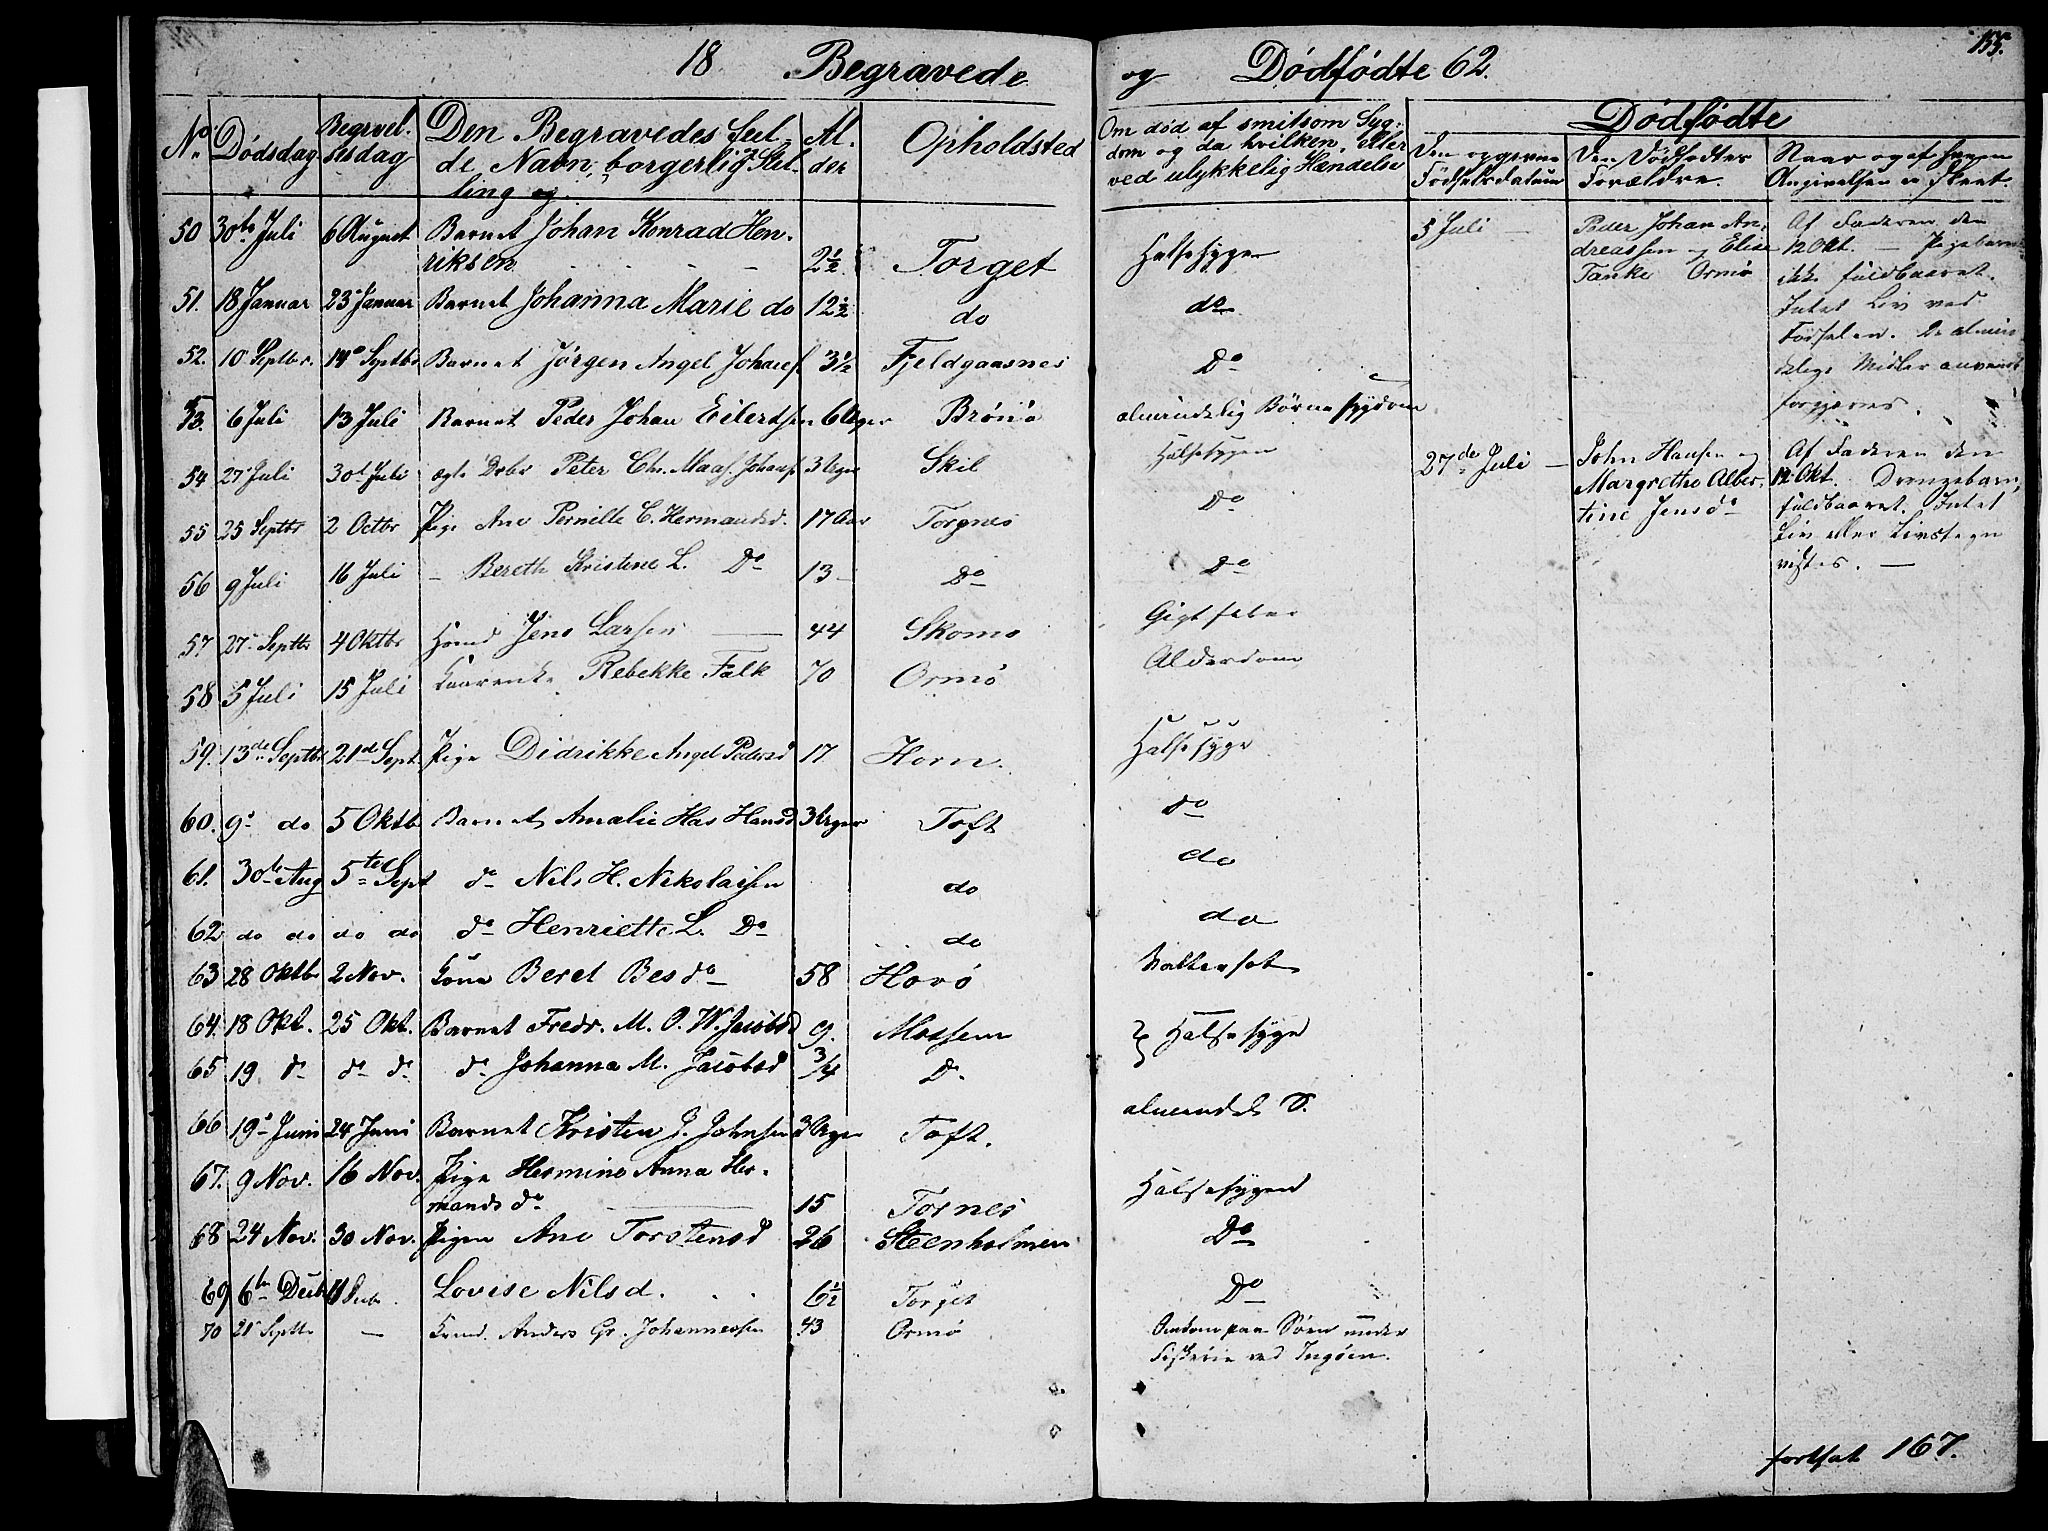 18 Begravede og Dødfødte 62.
155.
No. Dødsdag Begravelsesdag Den Begravedes Fulde Navn, borgerlig Stilling og Alder Opholdsted
Om død af smitsom Sygdom og da hvilken, eller ved ulykkelig Hændelse
Dødfødte
Den opgivne Fødselsdatum
Den Dødfødtes Forældre.
Naar og af hvem Angivelsen er skeet.
50 30te Juli 6 August Barnet Johan Konrad Henriksen 2½ Torget Halsesygen
51. 18 Januar 23 Januar Barnet Johanna Marie do 12½ do do
52. 10 Septbr. 14 Septbr Barnet Jørgen Angel Johans 3½ Fjeldgaasnes Do
53. 6 Juli 13 Juli Barnet Peder Johan Eilertsen 6 Uger Brønø almindelig Børnesygdom
54 27 Juli 30te Juli Peter Chr. Maas. Johans 3 Uger Skil Halsesygen
55 25 Septbr 2 Octbr Pige Ane Pernille C. Hermandsd. 17 Aar Torgnes Do
56 9 Juli 16 Juli - Bereth Kristine L. Do 13 - Do Do
57 27 Septbr 4 Oktbr Jens Larsen 44 Skomo Gigtfeber
58 5 Juli 15 Juli Rebekke Falk 70 Ormø Alderdom
59. 13de Septbr 21de Sept. Pige Didrikke Angel Pedersd 17 Horn. Halsesyge
60. 9 do 5 Oktb Barnet Amalie Has Hansd 3 Uger Toft do
61. 30te Aug 5te Sept do Nils H. Nikolaisen do do
62 do do do do do Henriette L. Do do do
63 28 Oktb 2 Nov. Kone Beret Besdo 58 Hovø Vattersot
64. 18 Okt. 25 Okt. Barnet Fredr. M. O. W. Jacobsd 9. Mossem } Halsesyge
65 19 do do do do Johanna M. Jacobsd 3/4 Do
66 19 Juni 24 Juni Barnet Kristen J. Johnsen 3 Uger Toft. almindel. S.
67. 9 Nov. 16 Nov. Pige Hermine Anna Hermandsdo 15 Tornes Halsesygen
68 24 Nov. 30 Nov. Pigen Ane Torstensd 26 Steenholmen Do
69 6te Decb Lovise Nilsd. 6½ Torget Do
70 21 Septbr — Anders Gr. Johannessen 43 Ormø Omkom paa Søen under
Fiskerie ved Ingøen.
5 Juli — Peder Johan Andreassen og Elise Tanke Ormø
Af Faderen den
12 Okt. — Pigebarn
ikke fuldbaaret.
Intet Liv ved
Fødselen. De almindelige
Midler anvendt
forgjæves.
27de Juli — John Hansen og Margrethe Albertine Jensdo
Af Faderen den
12 Okt. Drengebarn,
fuldbaaret. Intet
Liv eller Livstegn
vistes. —
fortsat 167.